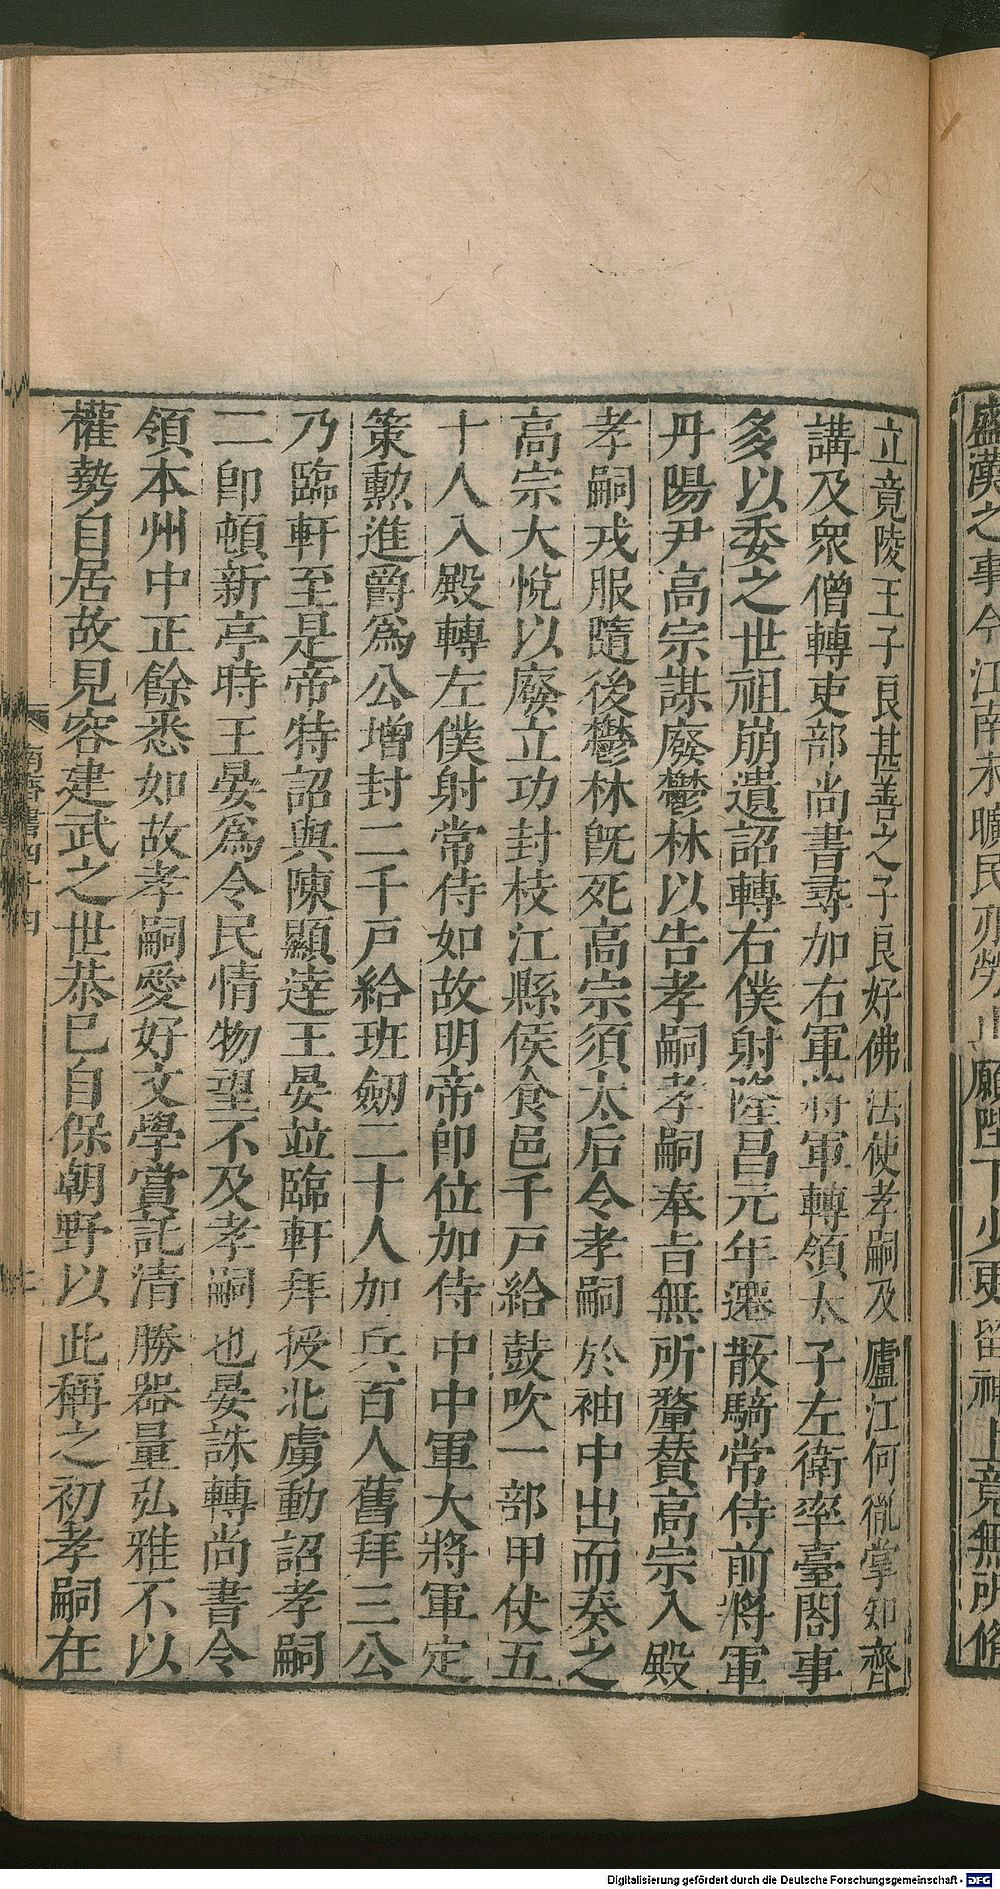 盛漢之事今江南未曠民亦勞止願陛下少更留神上竟無所脩
立竟陵王子良甚善之子良好佛法使孝嗣及廬江何胤掌知齊
講及衆僧轉吏部尚書尋加右軍將軍轉領太子左衛率臺閣事
多以委之世祖崩遺詔轉右僕射隆昌元年遷散騎常侍前將軍
丹陽尹高宗謀廢鬱林以告孝嗣孝嗣奉旨無所釐贊高宗入殿
孝嗣戎服隨後鬱林既死高宗須太后令孝嗣於袖中出而奏之
高宗大悅以廢立功封枝江縣侯食邑千戸給鼓吹一部甲仗五
十人入殿轉左僕射常侍如故明帝卽位加侍中中軍大將軍定
策勲進爵爲公增封二千戸給班劒二十人加兵百人舊拜三公
乃臨軒至是帝特詔與陳顯達王晏並臨軒拜授北虜動詔孝嗣
二卽頓新亭時王晏爲令民情物望不及孝嗣也晏誅轉尚書令
領本州中正餘悉如故孝嗣愛好文學賞託清勝器量弘雅不以
權勢自居故見容建武之世恭已自保朝野以此稱之初孝嗣在
南齊書四十四
Digitalisierung gefördert durch die Deutsche Forschungsgemeinschaft - DFG